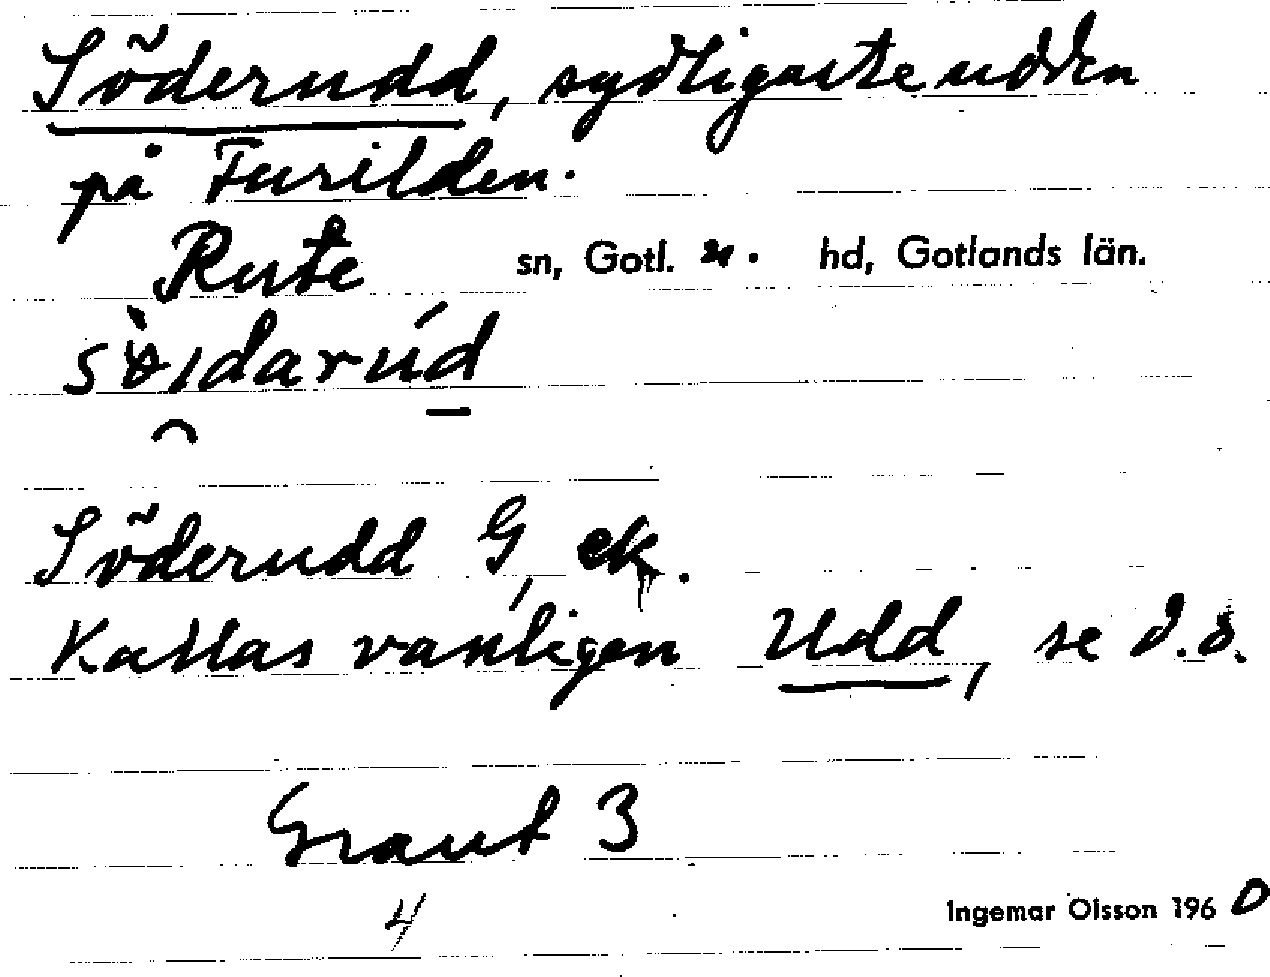 Söderudd, sydligaste udden
på Furilden.
Rute sn, Gotl. n. hd, Gotlands län.
Söderudd G, ek.
Kallas vanligen Udd, se d.o.
Graut 3
4
Ingemar Olsson 1960